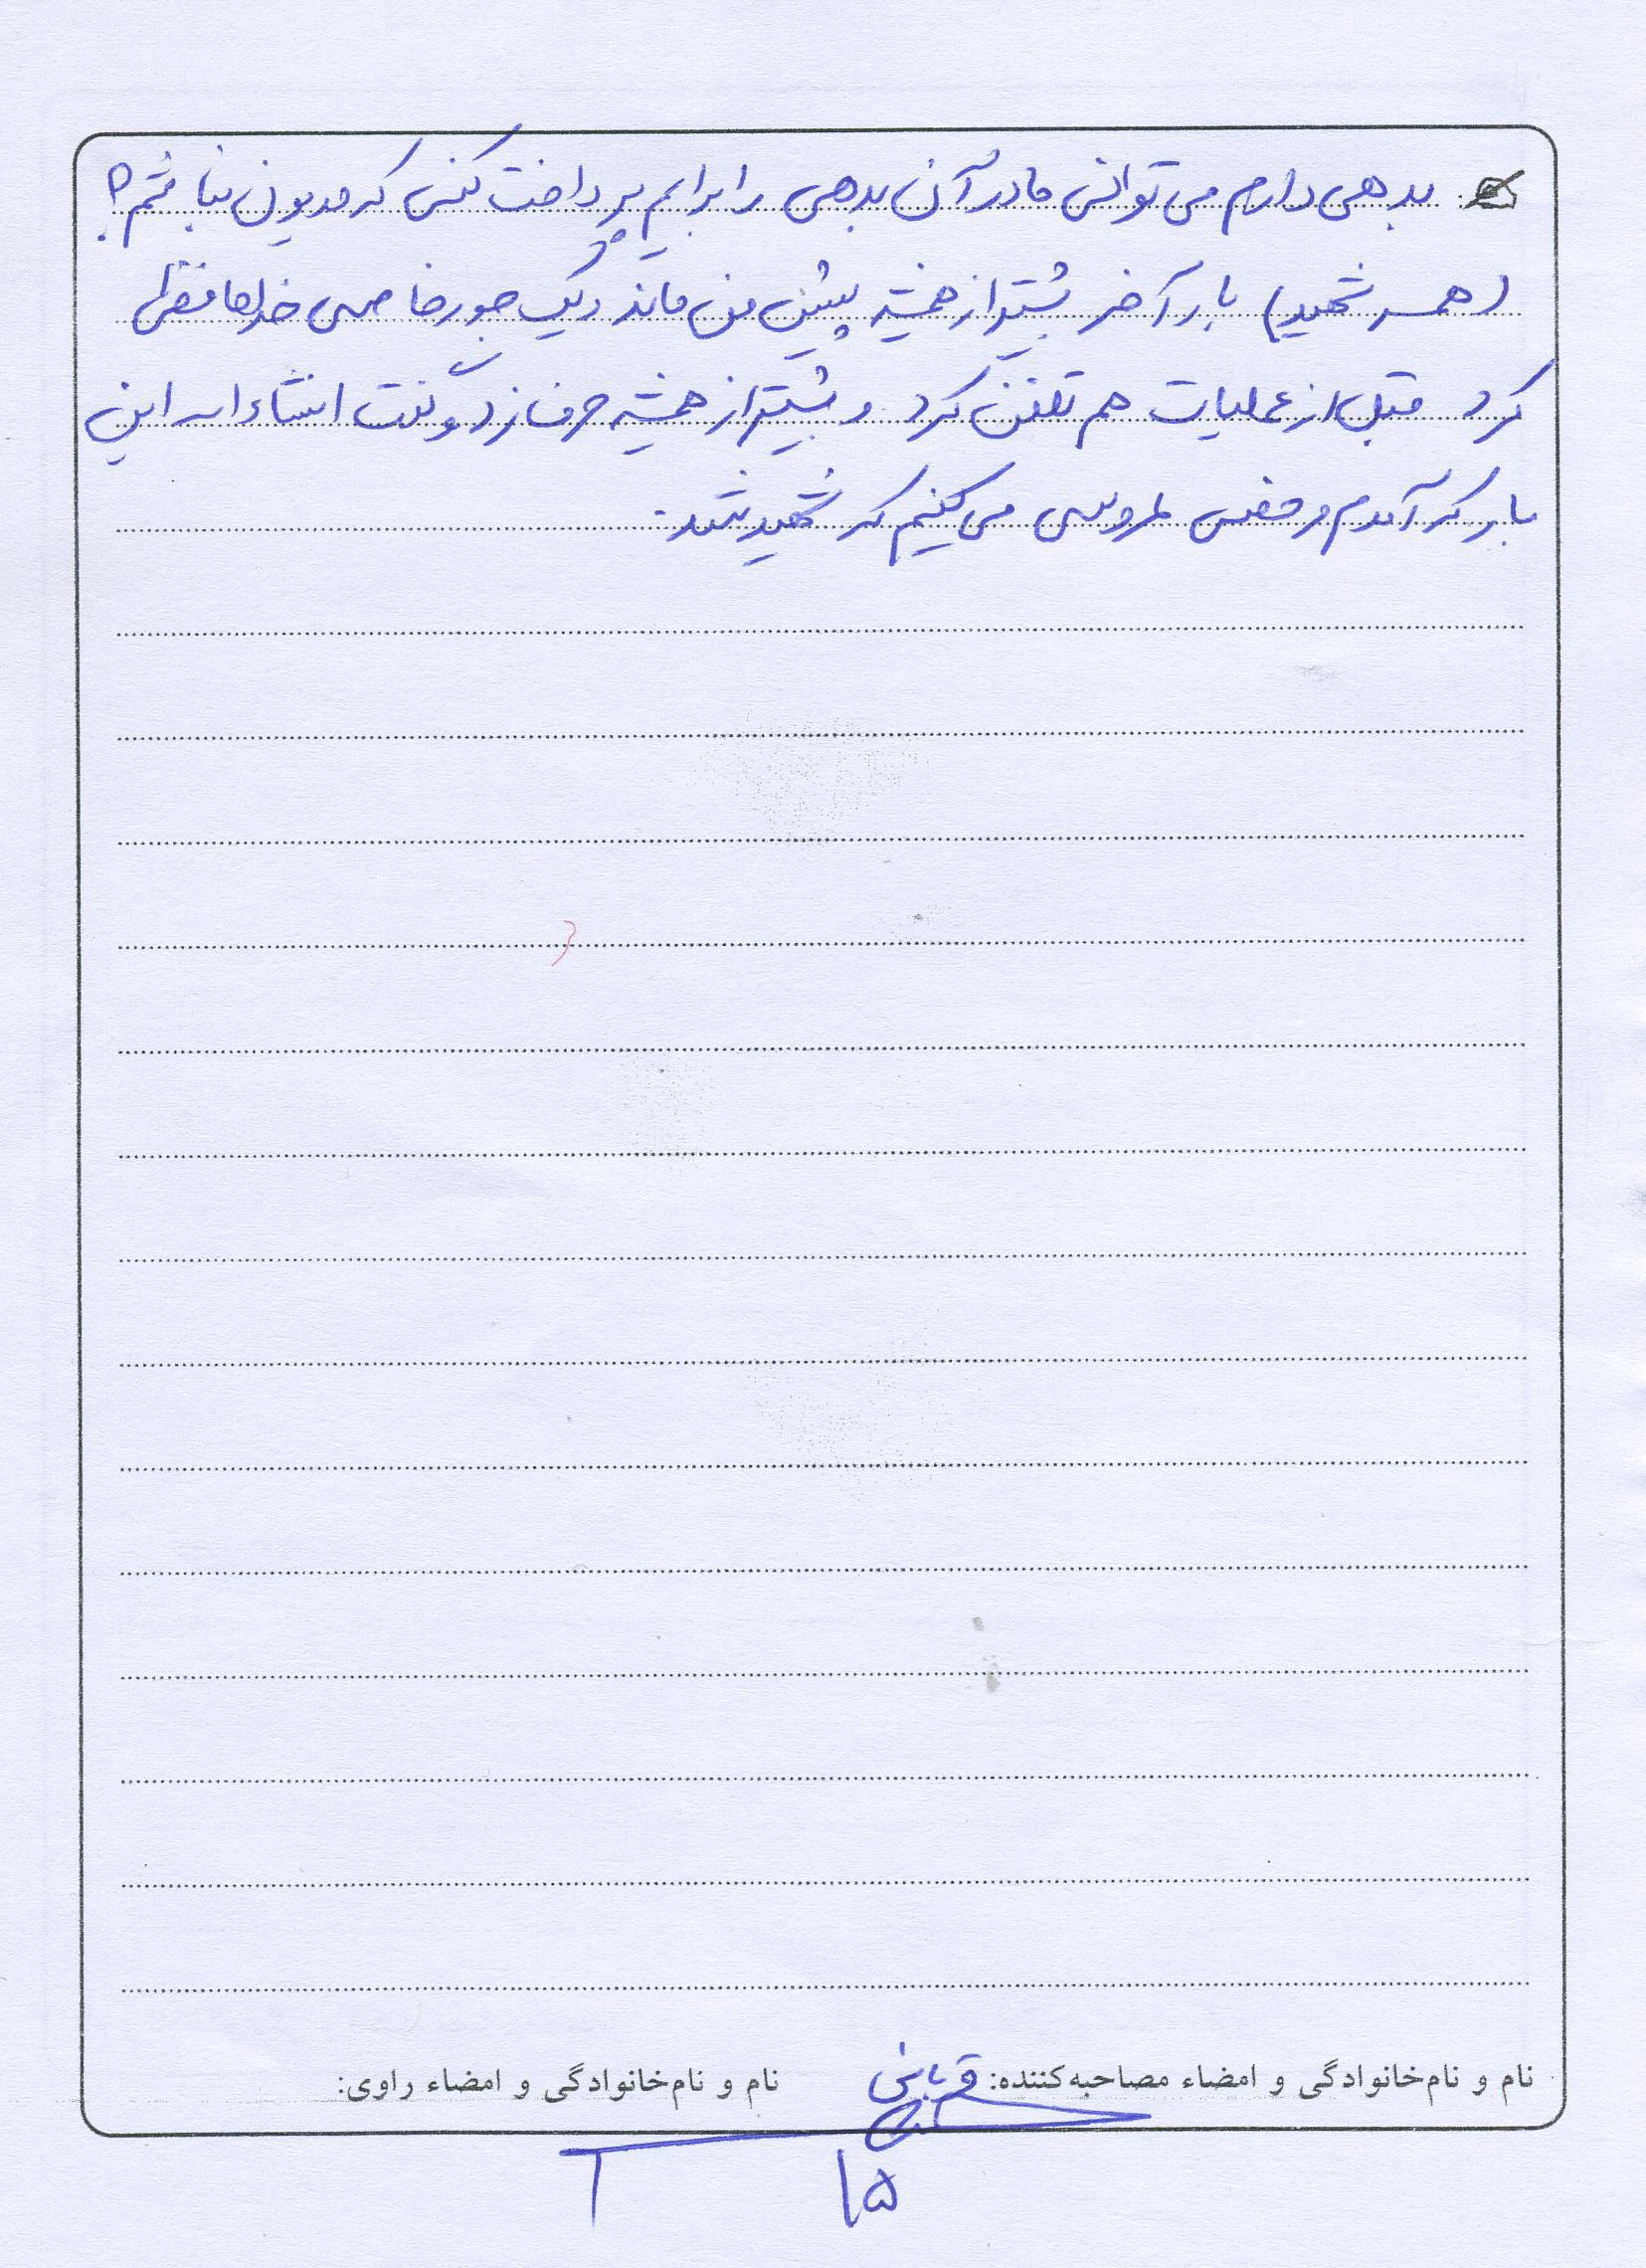 بدهی دارم می توانی مادر آن بدهی را برایم پرداخت کنی که مدیون نباشم؟
(همسر شهید) بار آخر بیشتر از همیشه پیش من ماند و یک جور خاصی خداحافظی
کرد قبل از عملیات هم تلفن کرد و بیشتر از همیشه حرف زد و گفت انشاءاله این
بار که آمدم مرخصی عروسی می کنیم که شهید شد.
نام و نام‌خانوادگی و امضاء مصاحبه‌کننده: قربانی
نام و نام‌خانوادگی و امضاء راوی:
۱۵